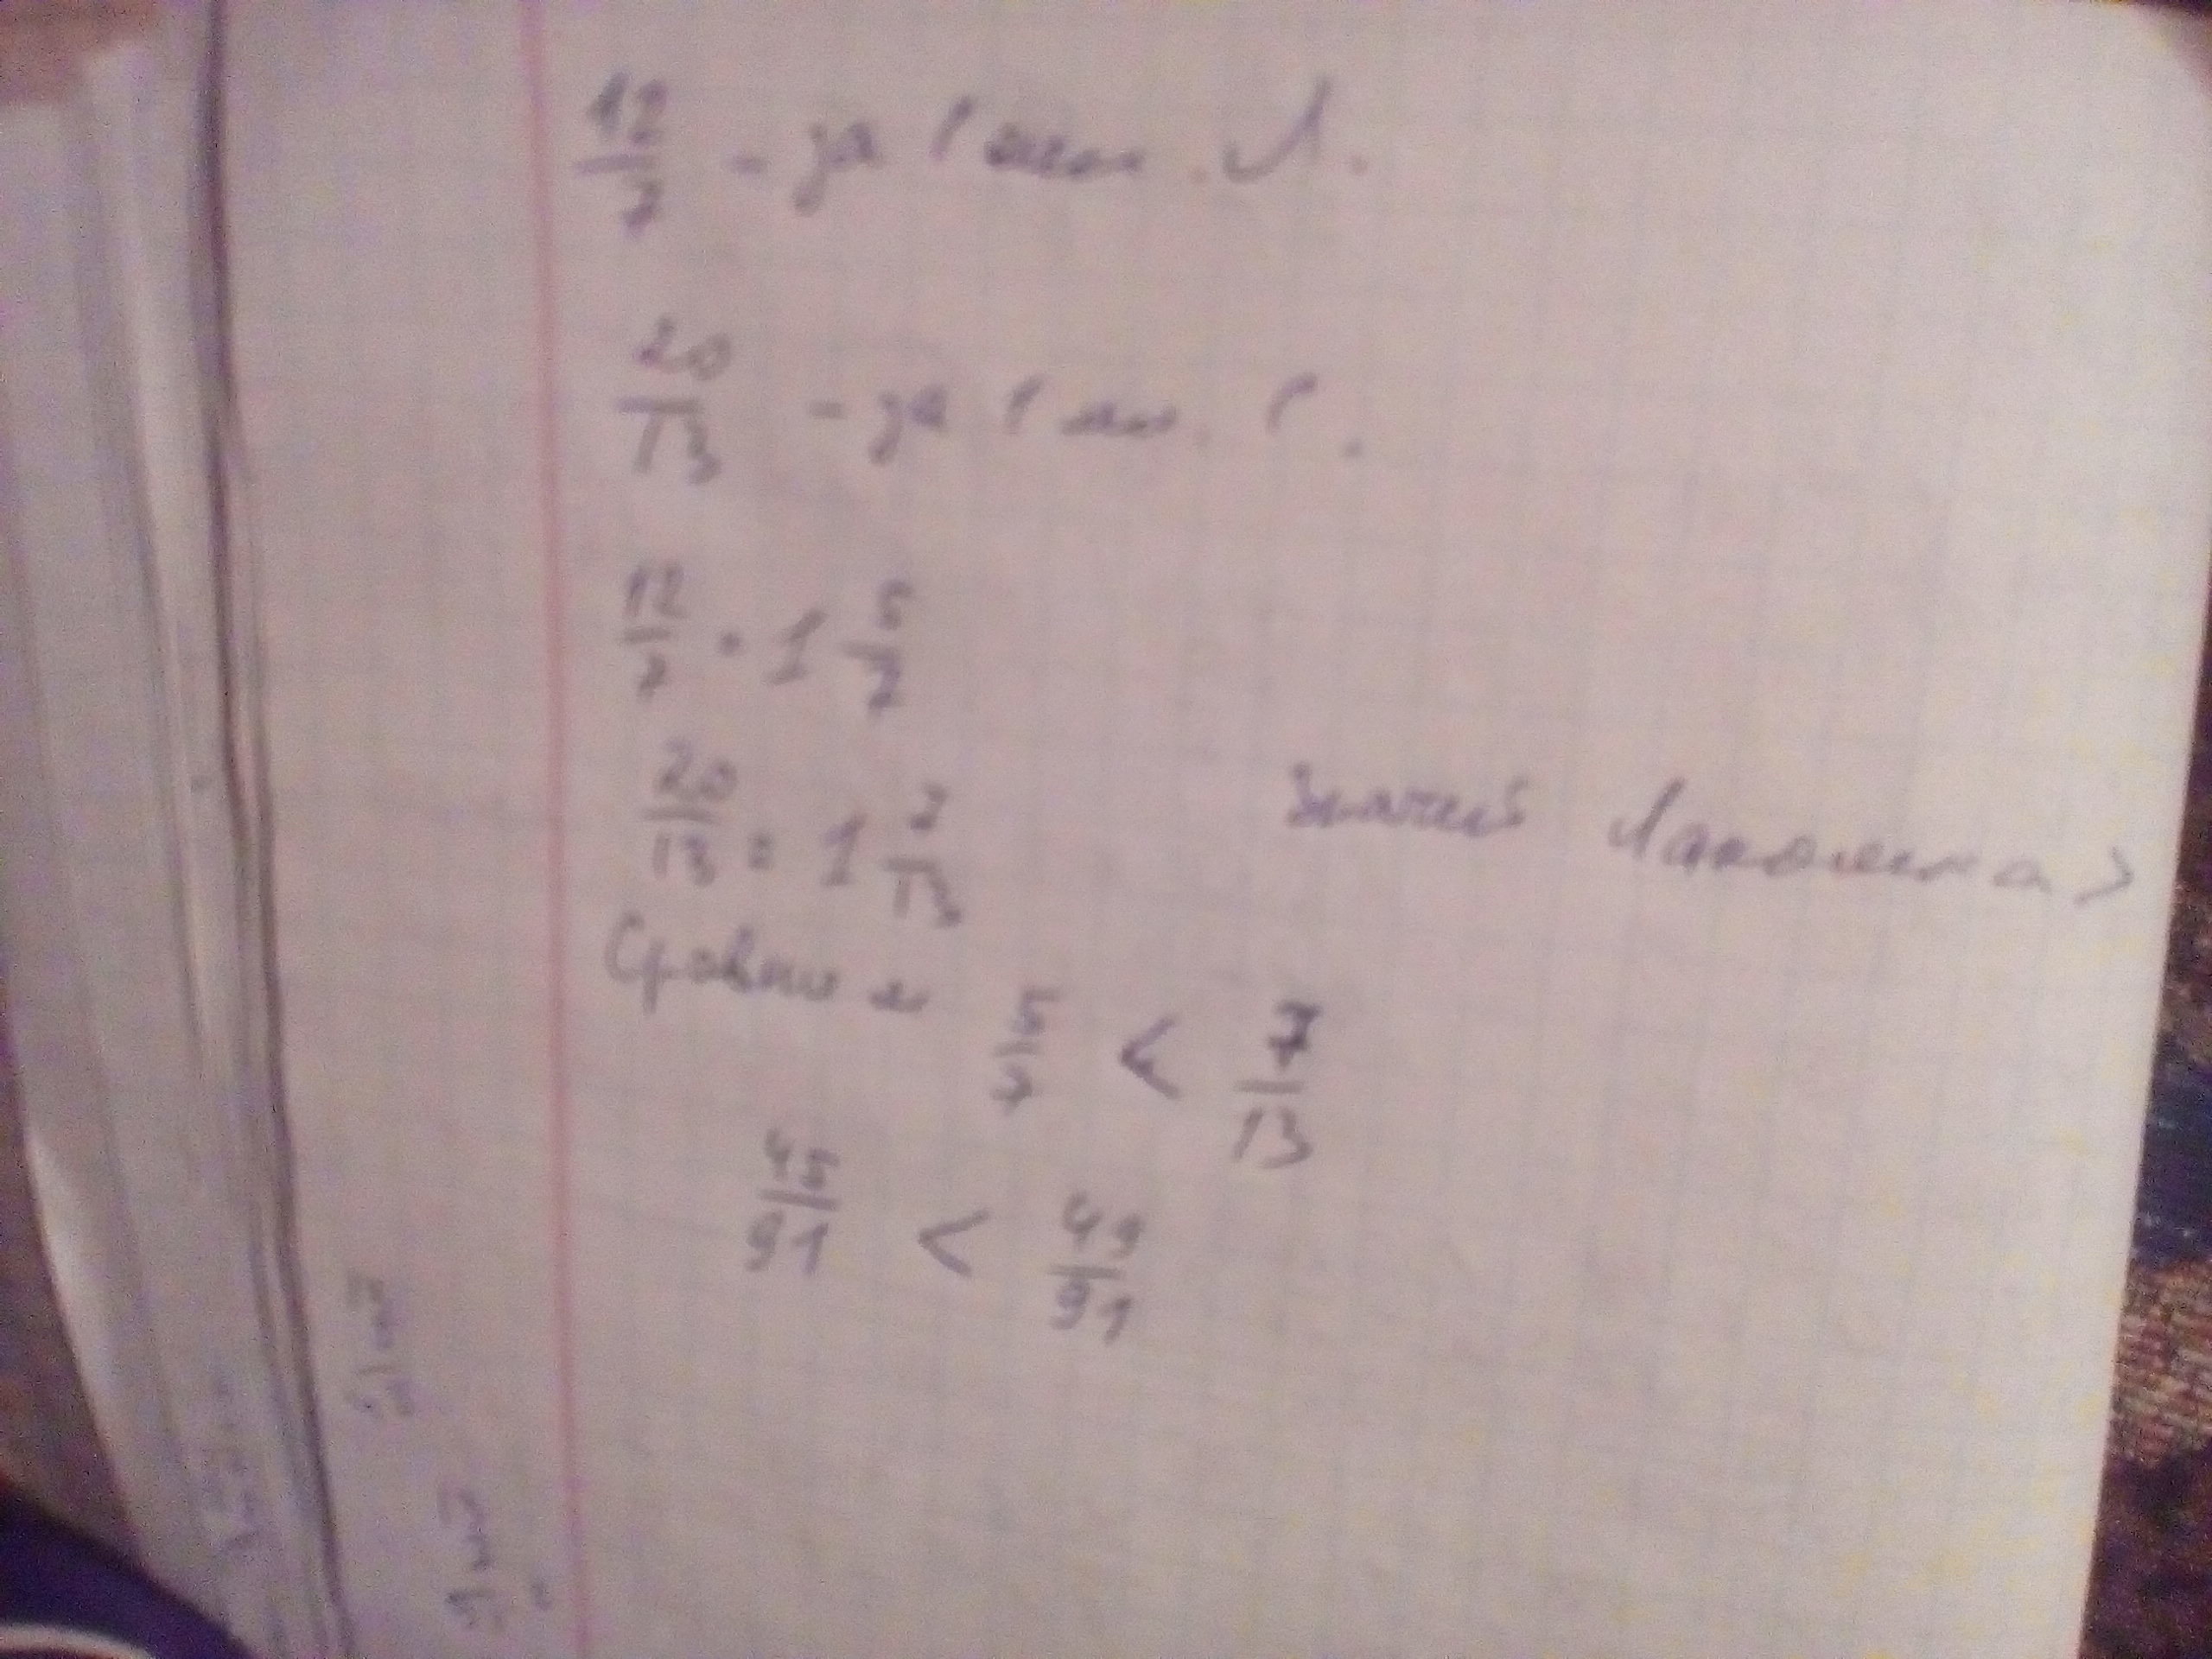 12/7 - за 1 мин. Л.
20/13 - за 1 мин. Г.
12/7 = 1 5/7
20/13 = 1 7/13
Значит
Сравним 5/7 < 7/13
45/91 < 49/91